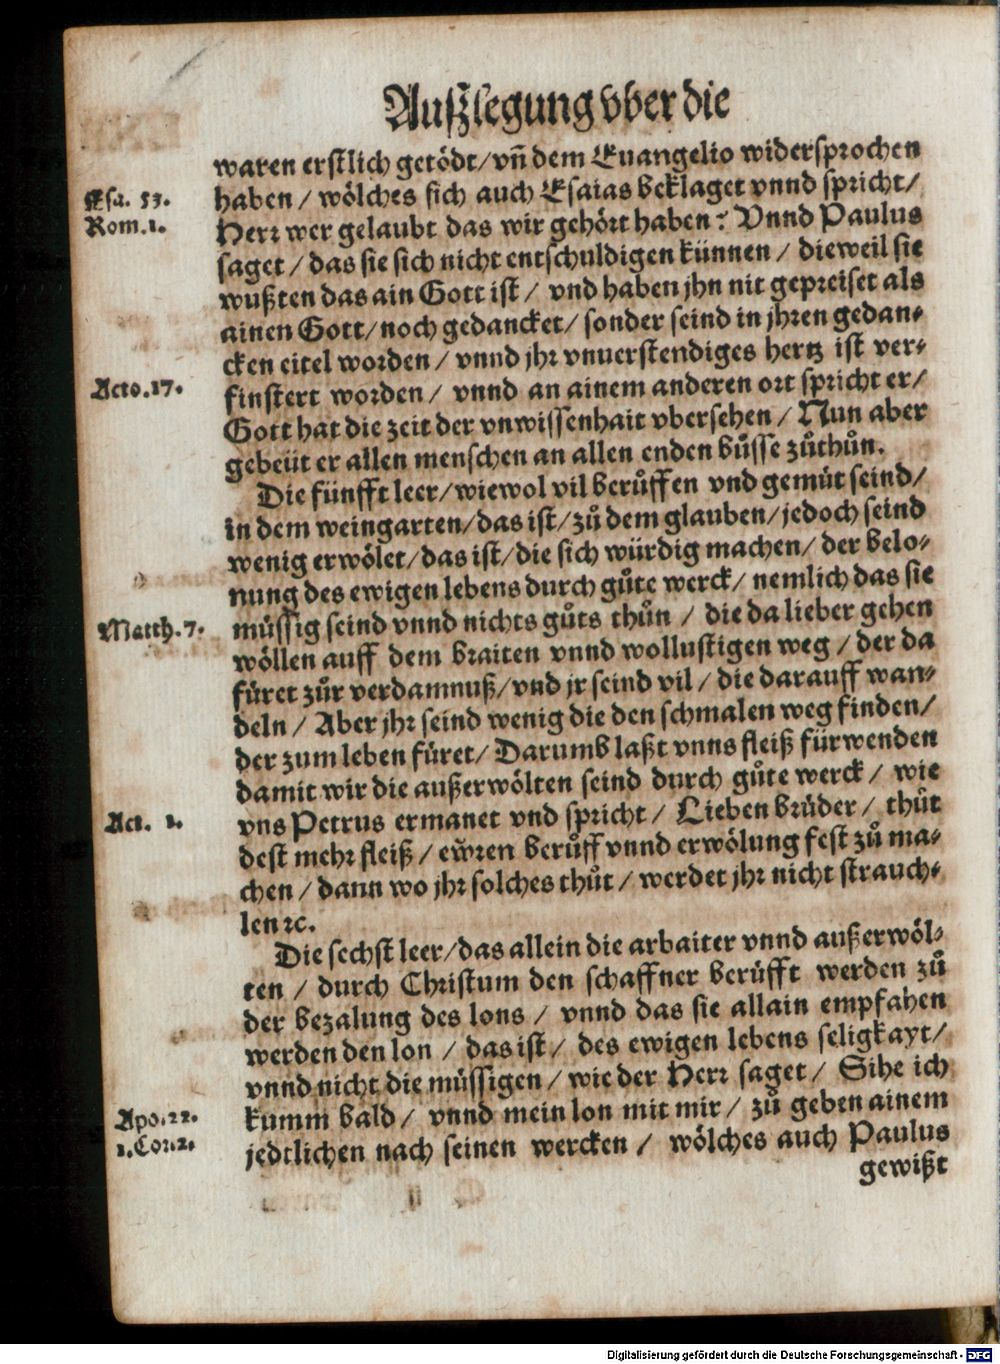 Außlegung vber die
waren erstlich getödt/vñ dem Euangelio widersprochen
Esa. 53.
haben / wölches sich auch Esaias beklaget vnnd spricht/
Rom.1.
Herr wer gelaubt das wir gehört haben: Vnnd Paulus
saget / das sie sich nicht entschuldigen künnen / dieweil sie
wußten das ain Gott ist / vnd haben jhn nit gepreiset als
ainen Gott/noch gedancket/ sonder seind in jhren gedan⸗
cken eitel worden / vnnd jhr vnuerstendiges hertz ist ver⸗
Acto.17.
finstert worden / vnnd an ainem anderen ort spricht er/
Gott hat die zeit der vnwissenhait vbersehen / Nun aber
gebeüt er allen menschen an allen enden bůsse zůthůn.
Die fünfft leer/wiewol vil berůffen vnd gemüt seind/
in dem weingarten/das ist/zů dem glauben/jedoch seind
wenig erwölet/das ist/die sich würdig machen/ der belo⸗
nung des ewigen lebens durch gůte werck/ nemlich das sie
Matth.7.
müssig seind vnnd nichts gůts thůn / die da lieber gehen
wöllen auff dem braiten vnnd wollustigen weg / der da
füret zůr verdamnuß/vnd jr seind vil / die darauff wan⸗
deln / Aber jhr seind wenig die den schmalen weg finden/
der zum leben füret/ Darumb laßt vnns fleiß fürwenden
damit wir die außerwölten seind durch gůte werck / wie
Act. 1.
vns Petrus ermanet vnd spricht / Lieben brüder / thůt
dest mehr fleiß / eẘren berůff vnnd erwölung fest zů ma⸗
chen / dann wo jhr solches thůt / werdet jhr nicht strauch⸗
len ꝛc.
Die sechst leer/das allein die arbaiter vnnd außerwöl⸗
ten / durch Christum den schaffner berüfft werden zů
der bezalung des lons / vnnd das sie allain empfahen
werden den lon / das ist / des ewigen lebens seligkayt/
vnnd nicht die müssigen / wie der Herr saget / Sihe ich
Apo.22.
kumm bald / vnnd mein lon mit mir / zů geben ainem
1.Cor.2.
jedtlichen nach seinen wercken / wölches auch Paulus
gewißt
Digitalisierung gefördert durch die Deutsche Forschungsgemeinschaft - DFG